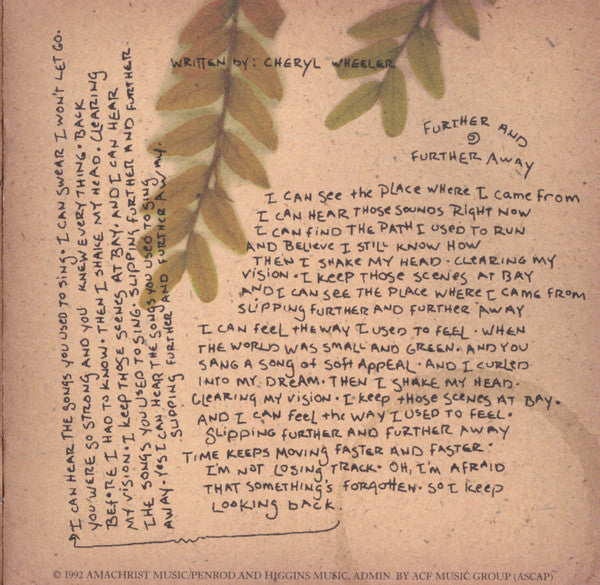 WRITTEN by: CHERYL WHEELER
FURTHER AND
FURTHER AWAY
I CAN See the PLACE WHERE I CAMe FROM
I CAN HEAR THOSE SOUNDS RIGHT NOW
I CAN FIND THE PATH I USED TO RUN
AND BeLIeve I STILL KNOW HOW
THEN I SHAKE MY HEAD • CLEARING MY
VISION • I KEEP THOSE SCENeS AT BAY
AND I CAN SEE THE PLACE WHERE I CAME FROM
SLIPPING FURTHER AND FURTHER AWAY
I CAN feeL the WAY I USeD TO FEEL • WHEN
THE WORLD WAS SMALL AND GREEN • AND YOU
SANG A SONG of SOFT APPEAL • AND I CURLED
INTO MY DREAM • THEN I SHAKE MY HEAD •
CLEARING MY VISION • I KEEP tHOSE SCENES AT BAY •
AND I CAN FeeL tHe WAY I USED TO FEEL •
SLIPPING FURTHER AND FURTHER AWAY
TIME KEEPS MOVING FASTER AND FASTER •
I'M NOT LOSING TRACK • OH, I'M AFRAID
THAT SOMETHING'S FORGOTTEN • SO I KEEP
LOOKING BACK
I CAN HEAR THE SONGS YOU USED TO SING • I CAN SWEAR I WON'T LET GO •
YOU WERE SO STRONG AND YOU KNEW EVERY THING • BACK
BEFORE I HAD TO KNOW • THEN I SHAKE MY HEAD • CLEARING
MY VISION • I KEEP THOSE SCENES AT BAY • AND I CAN HEAR
THE SONGS YOU USED TO SING • SLIPPING FURTHER AND FURTHER
AWAY • YES I CAN HEAR THE SONGS YOU USED TO SING
SLIPPING FURTHER AND FURTHER AWAY •
© 1992 AMACHRIST MUSIC/PENROD AND HIGGINS MUSIC, ADMIN. BY ACF MUSIC GROUP (ASCAP)